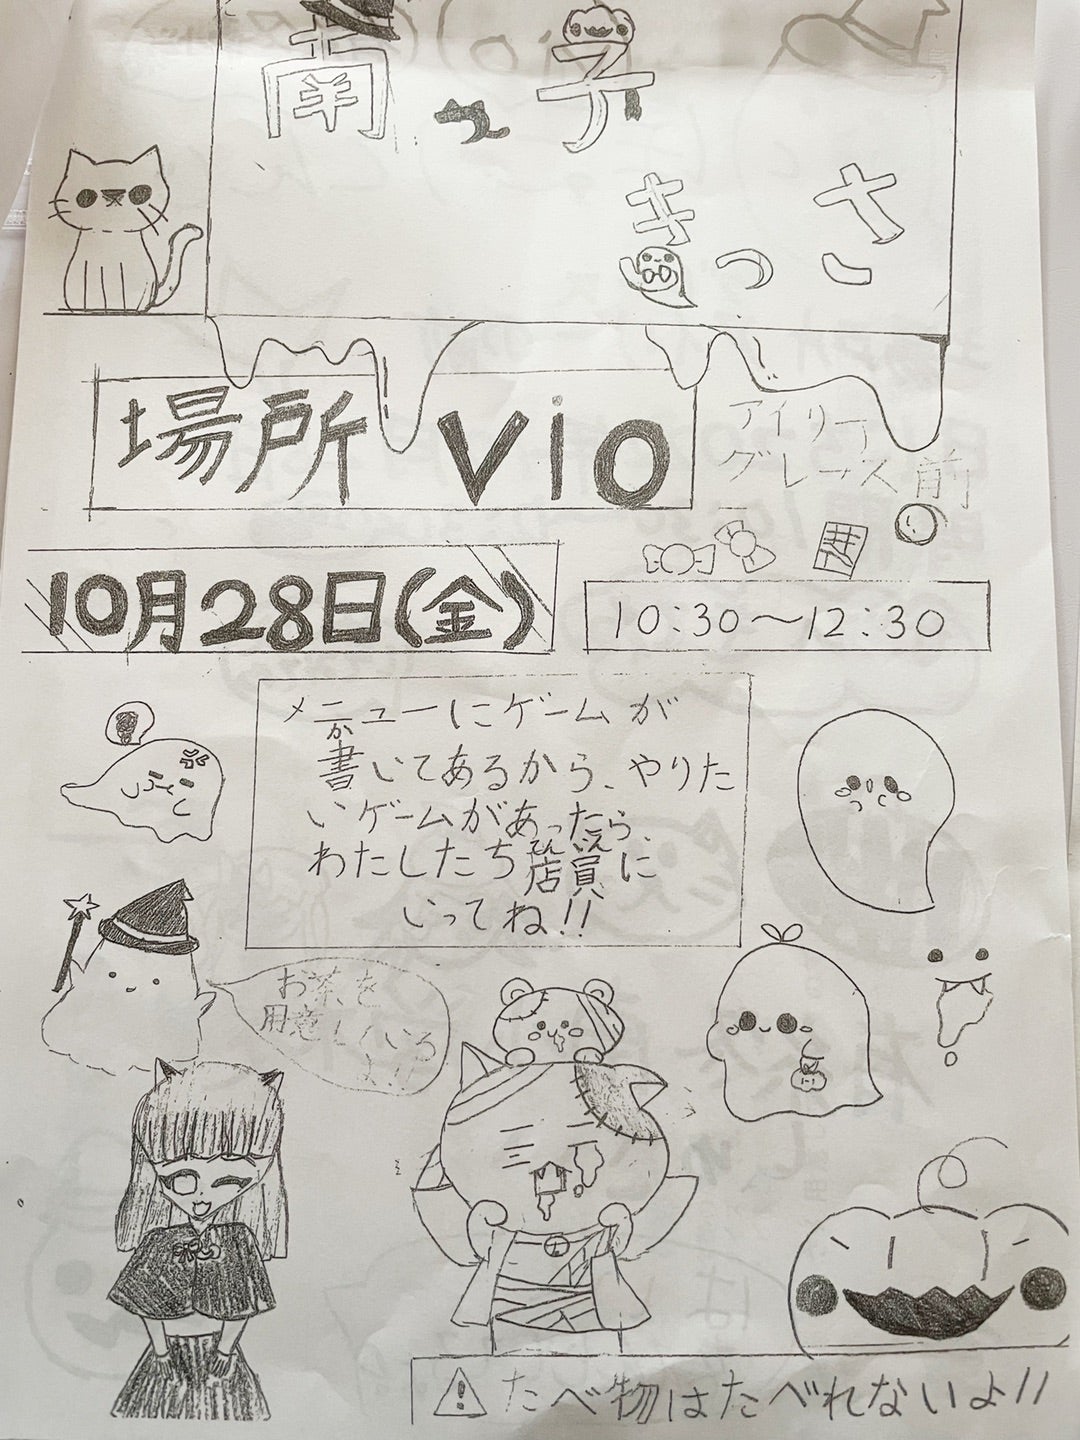 南っ子
きっさ
場所 vio
アイリー
グレース前
10月28日(金)
10:30〜12:30
メニューにゲームが
書いてあるから、やりた
いゲームがあったら、
わたしたち店員に
いってね!!
お茶を
用意しているよ!!
⚠たべ物はたべれないよ!!